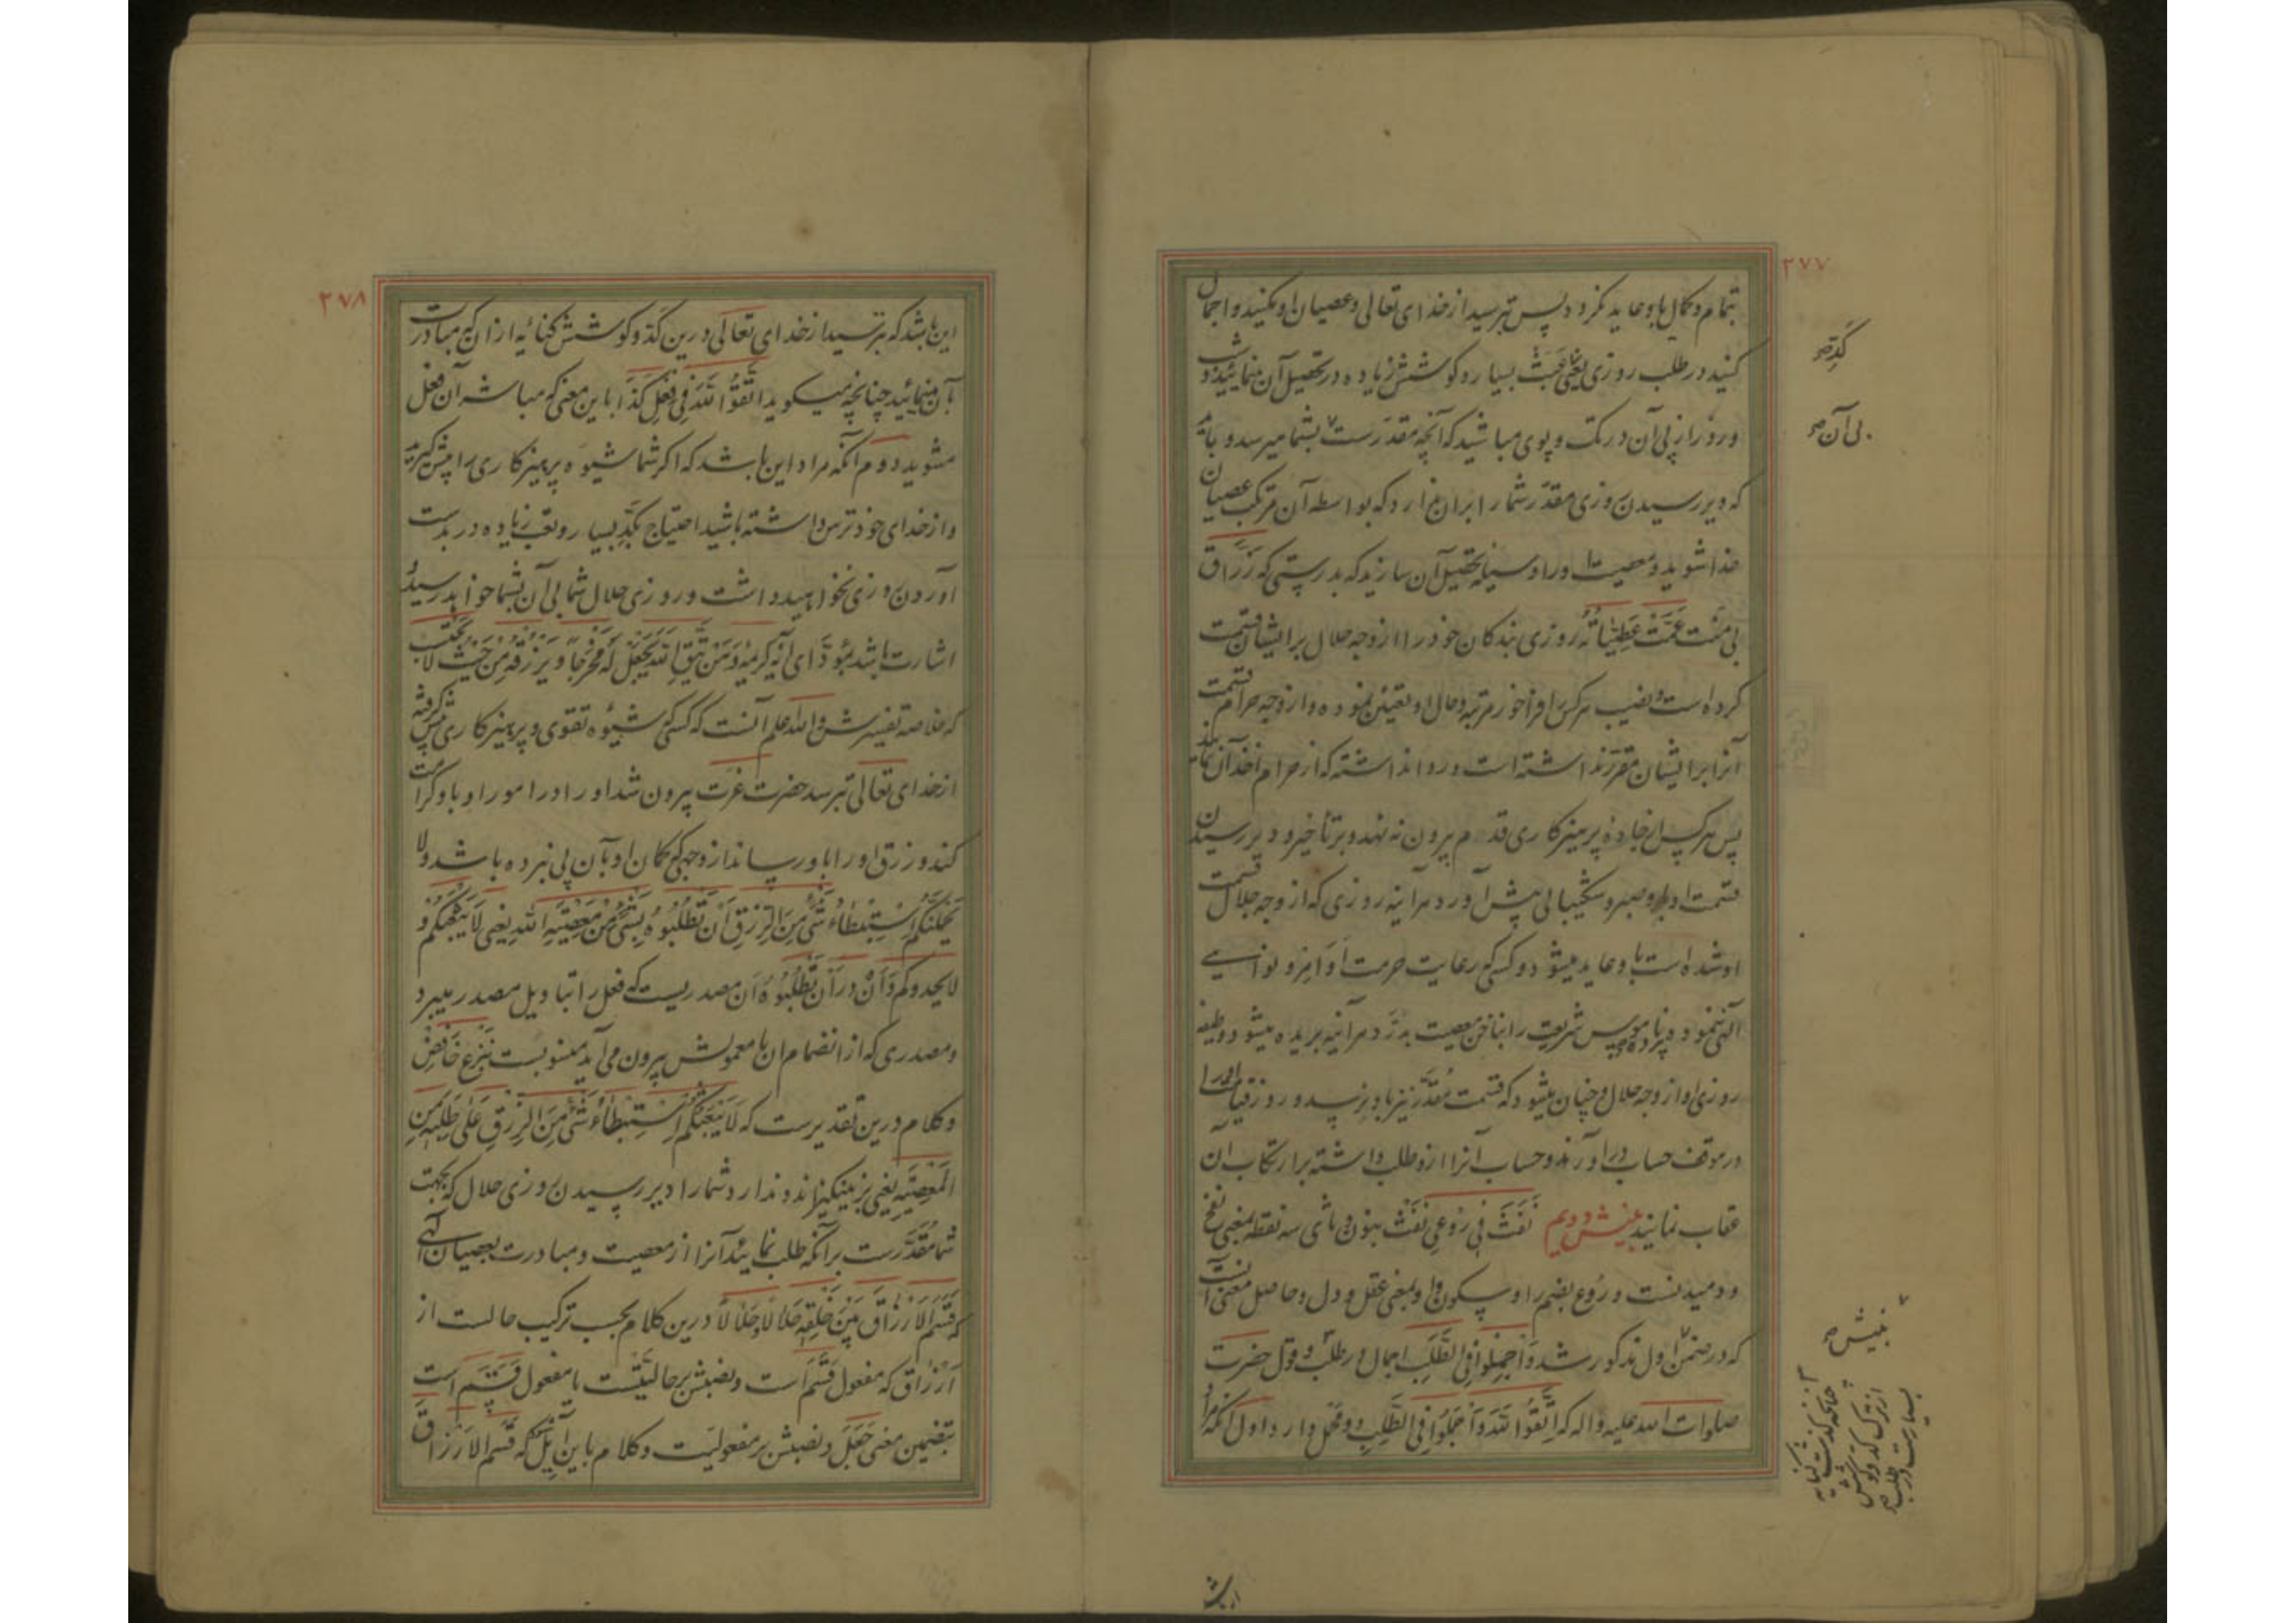 ۲۷۷
بتمام و کمال باو عاید نکرود پس بترسید از خدای تعالی و عصیان او مکنید و اجمال
کنید در طلب روزی یعنی بسیار و کوشش زیاده در تحصیل آن منمائید و
روز از پی آن در تک و پوی مباشید که آنچه مقدرست بشما میرسد و باید
که دیر رسیدن روزی مقدر شما را بران ندارد که بواسطه آن مرتکب عصیان
خدا شوید و معصیت او را وسیله تحصیل آن سازید که بدرستی که رزاق
بی منت عمت عطیاته روزی بندکان خود را از وجه حلال برایشان قسمت
کرده است و نصیب هرکس فراخور مرتبه و حال او تعیین نموده و از وجه حرام قسمت
آنرا برایشان مقرر نداشته است و روا نداشته که از حرام اخذ آن نمایند
پس هرکس از جادهٔ پرهیزکاری قدم بیرون ننهد و بر تأخیر و دیر رسیدن
قسمت او صبر و شکیبائی پیش آورد هرآینه روزی که از وجه حلال قسمت
او شده است باو عاید میشود و کسی که رعایت حرمت اوامر و نواهی
الهی ننمود و پردهٔ ناموس شریعت را بناخن معصیت بدرد هرآینه بریده میشود وظیفه
روزی او از وجه حلال و چنان میشود که قسمت مقدر نیز باو نرسد و روز قیامت او را
در موقف حساب درآورند و حساب آنرا ازو طلب داشته بر ارتکاب آن
عقاب نمایند بینش دویم نفث فی روعی نفث بنون و ثای سه نقطه بمعنی نفخ
و دمیدنست و روع بضم را و سکون واو بمعنی عقل و دل و حاصل معنی آنست
که در ضمن اول مذکور شد و اجملوا فی الطلب اجمال در طلب و قول حضرت
صلوات الله علیه و اله که اتقوا الله و اجملوا فی الطلب دو محمل دارد اول آنکه مراد
کد صح
بی آن صح
بینش صح
چنانکه گذشت کنایه
از ترک کد و کوشش
بسیارست در طلب صح
این باشد
۲۷۸
این باشد که بترسید از خدای تعالی درین کد و کوشش کنایه از آنکه مبادرت
بآن منمائید چنانچه میکوید اتقوا الله فی فعل کذا باین معنی که مباشر آن فعل
مشوید دوم آنکه مراد این باشد که اکر شما شیوه پرهیزکاری را پیش کیرید
و از خدای خود ترس داشته باشید احتیاج بکد بسیار و تعب زیاده در بدست
آوردن روزی نخواهید داشت و روزی حلال شما بی آن بشما خواهد رسید و
اشارت باشد بمؤدای آیه کریمه و من یتق الله یجعل له مخرجا و یرزقه من حیث لا یحتسب
که خلاصه تفسیرش والله اعلم آنست که کسی شیوه تقوی و پرهیزکاری پیش کرفته
از خدای تعالی بترسد حضرت عزت بیرون شد او را در امور او باو کرامت
کند و رزق او را باو رساند از وجهی که کمان او بآن پی نبرده باشد و لا
یحملنکم استبطاء شیء من الرزق ان تطلبوه بشیء من معصیة الله یعنی لا یبعثکم و
لا یحدوکم و ان در ان تطلبوه ان مصدریست که فعل را بتاویل مصدر میبرد
و مصدری که از انضمام ان با معمولش بیرون می آید منسوبست بنزع خافض
و کلام درین تقدیرست که لا یبعثکم استبطاء شیء من الرزق علی طلبه من
المعصیة یعنی برنینکیزاند و ندارد شما را دیر رسیدن روزی حلال که بجهت
شما مقدرست برآنکه طلب نمایید آنرا از معصیت و مبادرت بعصیان الهی
که قسم الارزاق بین خلقه حلالا حلالا درین کلام بحسب ترکیب حالست از
ارزاق که مفعول قسم است و نصبش بر حالیتست یا مفعول قسم است
بتضمین معنی جعل و نصبش بر مفعولیت و کلام باین آیل که قسم الارزاق